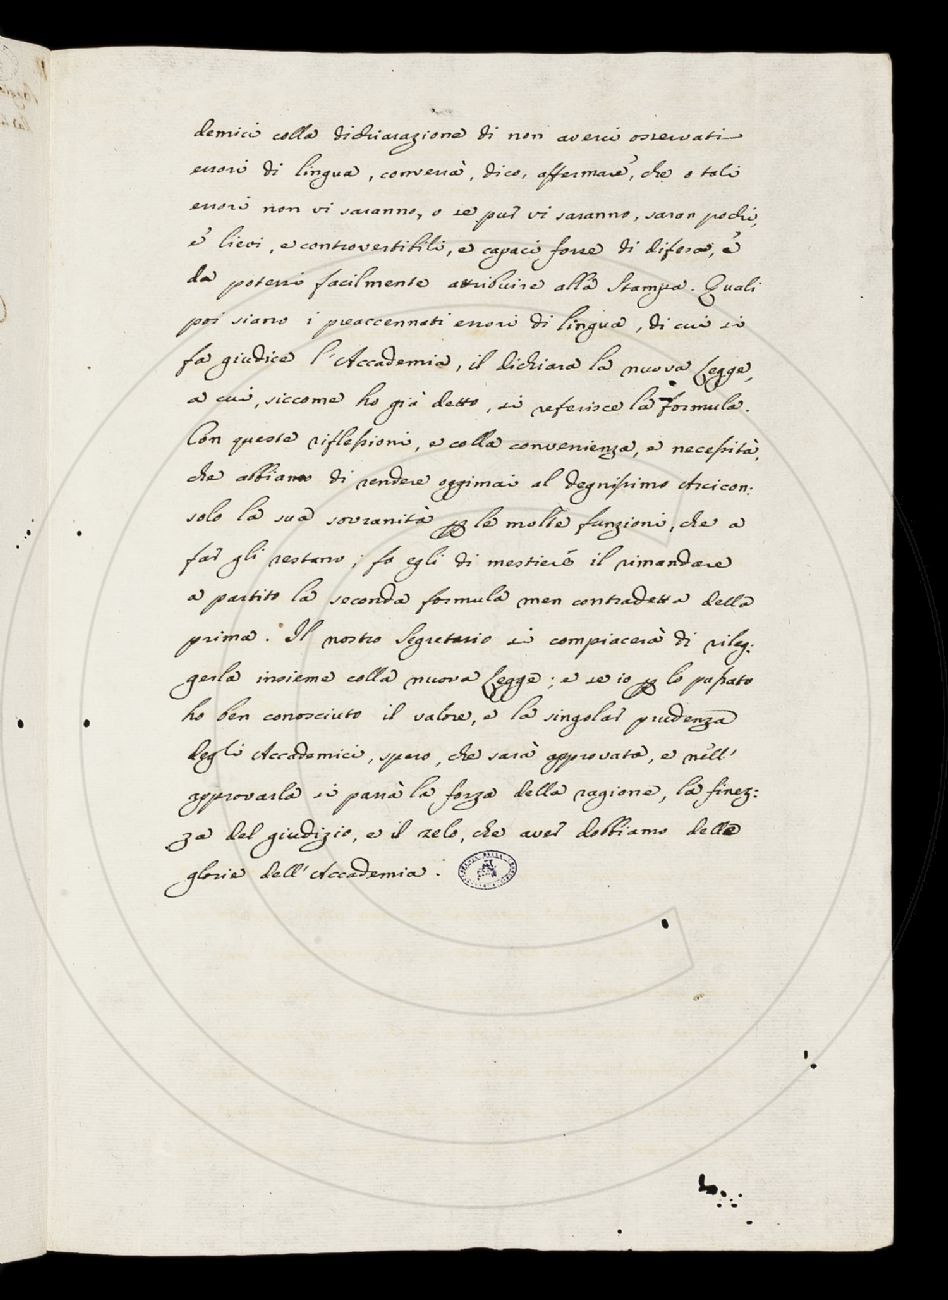 demici colla dichiarazione di non averci osservati
errori di lingua, converrà, dico, affermare, che o tali
errori non vi saranno, o se pur vi saranno, saran pochi,
e lievi, e controvertibili, e capaci forse di difesa, e
da potersi facilmente attribuire alla Stampa. Quali
poi siano i preaccennati errori di lingua, di cui si
fa giudice l'Accademia, il dichiara la nuova Legge,
a cui, siccome ho già detto, si referisce la formula.
Con queste riflessioni, e colla convenienza, e necessità,
che abbiamo di rendere oggimai al degnissimo Arcicon:
solo la sua sovranità per le molte funzioni, che a
far gli restano; fa egli di mestiere il rimandare
a partito la seconda formula men contradetta della
prima. Il nostro Segretario si compiacerà di rileg:
gerla insieme colla nuova Legge; e se io per lo passato
ho ben conosciuto il valore, e la singolar prudenza
degli Accademici, spero, che sarà approvata, e nell'
approvarla si parrà la forza della ragione, la finez:
za del giudizio, e il zelo, che aver dobbiamo delle
glorie dell'Accademia.